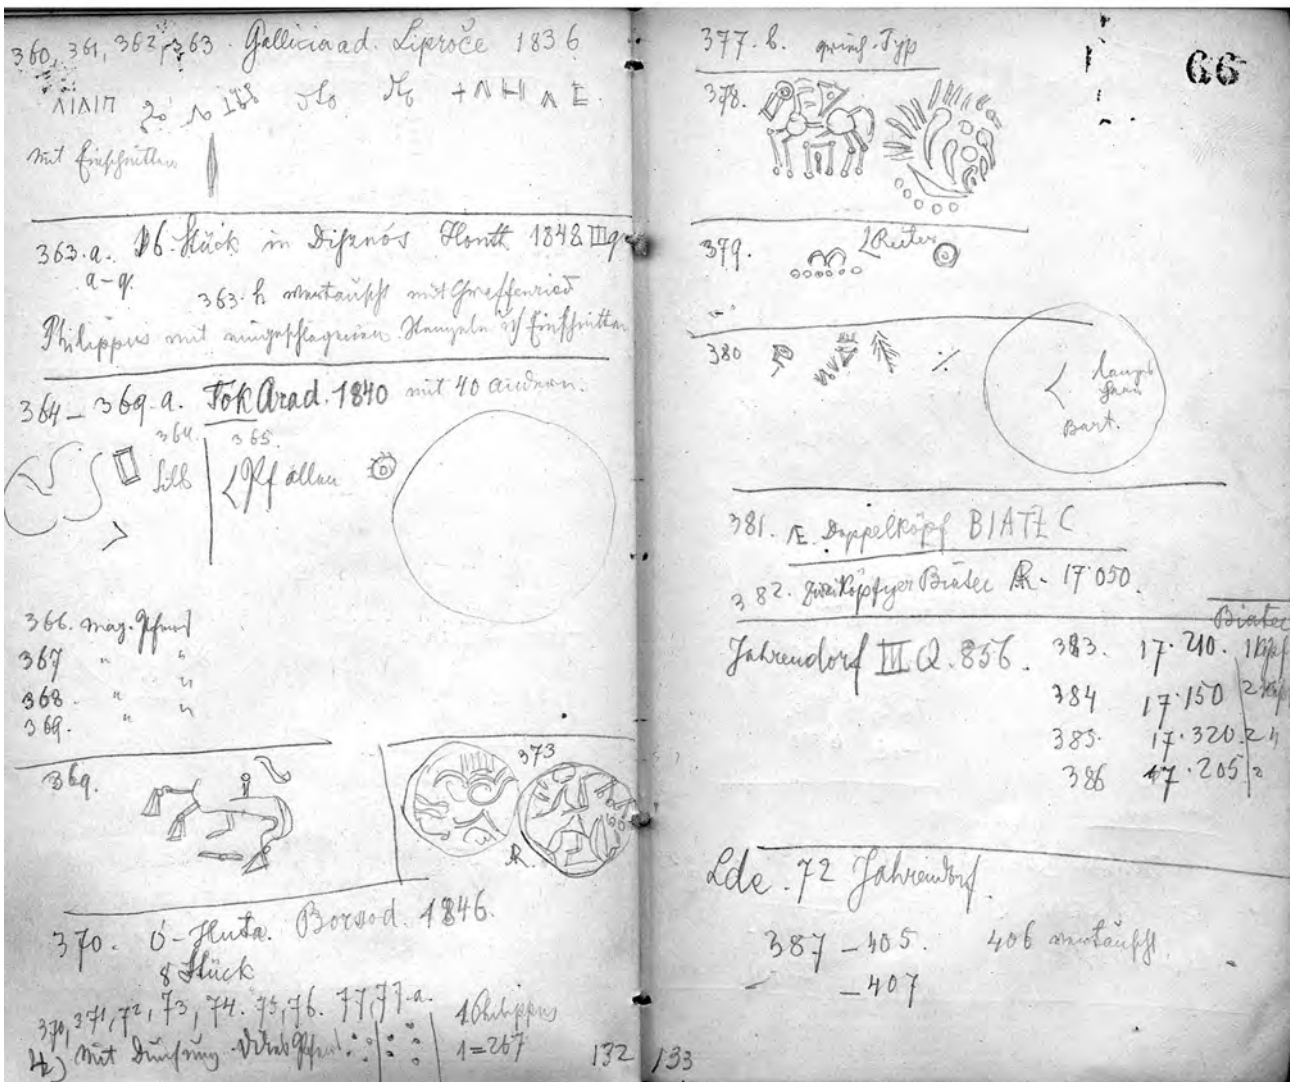 360, 361, 362, 363. Galliciaad. Liproče 1836
mit Einschnitten
363.a. 16 Stück in Disznós Honth 1848 III
a-q.
363.h vertauscht mit Graffenried
Philippus mit eingeschlagenen Stempeln Einschnitten
364 – 369.a. Tök Arad. 1840 mit 40 andern.
364. 365.
Silb
366. mag. Pferd
367 " "
368. " "
369. " "
369.
373
AR.
370. Ó-Huta. Borsod. 1846.
8 Stück
370, 371, 72, 73, 74. 75, 76. 77, 77.a. 1 Philippus
mit 1=267
132
377.b. griech. Typ
66
378.
379. Reiter
380
langes
Haar
Bart.
381. Æ. Doppelkopf BIATEC
382. zweiköpfiger Biatec AR. 17.050.
Biatec
Jahrendorf III. Q. 856. 383. 17.210. 1 Kopf
384 17.150 2 Köpf
385. 17.320. 2 "
386 17.205 2
Lde. 72 Jahrendorf.
387 – 405. 406 vertauscht.
– 407
133